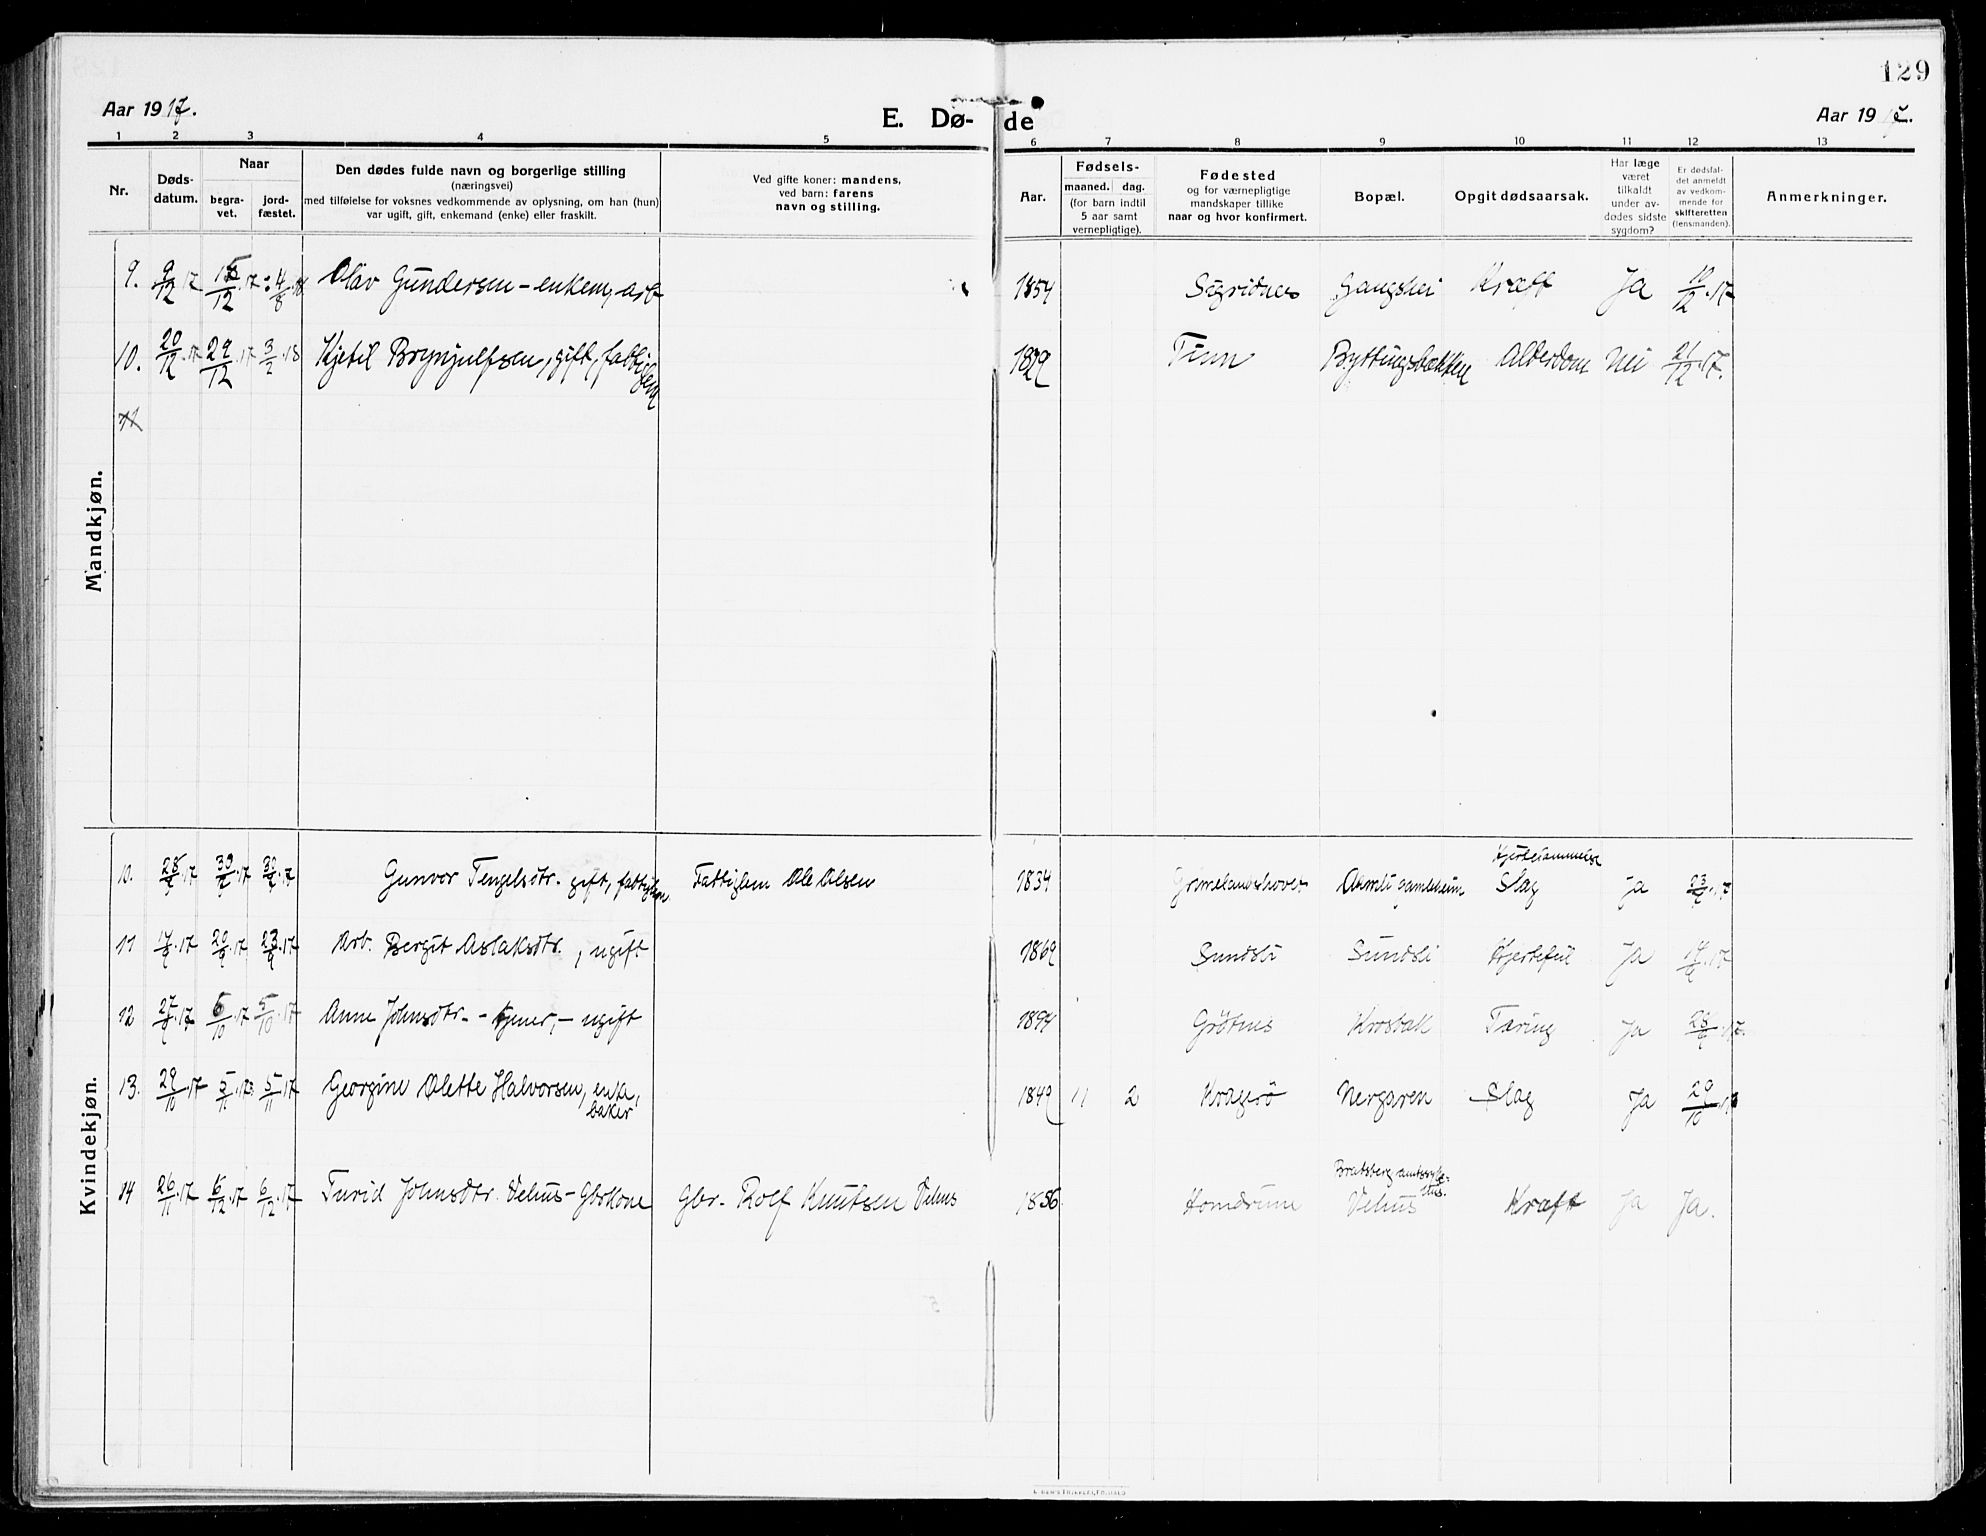 129
Aar 1917. E. Dø- de Aar 191
1 2 3 4 5 6 7 8 9 10 11 12 13
Nr.
Døds-
datum.
Naar
begra-
vet.
jord-
fæstet.
Den dødes fulde navn og borgerlige stilling
(næringsvei)
med tilføielse for voksnes vedkommende av oplysning, om han (hun)
var ugift, gift, enkemand (enke) eller fraskilt.
Ved gifte koner: mandens,
ved barn: farens
navn og stilling.
Aar.
Fødsels-
maaned. dag.
(for barn indtil
5 aar samt
vernepligtige).
Fødested
og for værnepligtige
mandskaper tillike
naar og hvor konfirmert.
Bopæl.
Opgit dødsaarsak.
Har læge
været
tilkaldt
under av-
dødes sidste
sygdom?
Er dødsfal-
det anmeldt
av vedkom-
mende for
skifteretten
(lensmanden).
Anmerkninger.
Mandkjøn.
9. 9/12 17 15/12 17 4/8 18 Olav Gundersen - enkem, arb 1854 Sigridnes Gangshei Kræft Ja 10/12.17
10. 20/12.17 29/12 17 3/2.18 Kjetil Brynjulfsen, gift, fattiglem 1829 Tinn Byttingsbækken Alderdom Nei 21/12.17.
11
Kvindekjøn.
10. Gunvor Tengelsdtr. gift, fattiglem Fattiglem Ole Olsen 1834 Grimelandshover gamleheim Hjertelammelse Slag ja
11 Arb. Bergit Aslaksdtr., ugift 1869 Sundsli Sundsli Hjertefeil Ja
12 27/9.17 5/10.17 5/10.17 Anne Johnsdtr. - tjener, - ugift 1894 Grötnes Krosbak Tæring Ja
13. 29/10.17 5/11.17 5/11.17 Georgine Olette Halvorsen, enke, baker 1849 11 2 Kragerö Nergaren Slag Ja 29/10.17
14 26/11.17 6/12.17 6/12.17 Turid Johnsdtr. Vehus - Gbrkone Gbr. Rolf Knutsen Vehus 1856 Homdrum Bratsberg amtssykehus. Vehus Kræft Ja Ja.